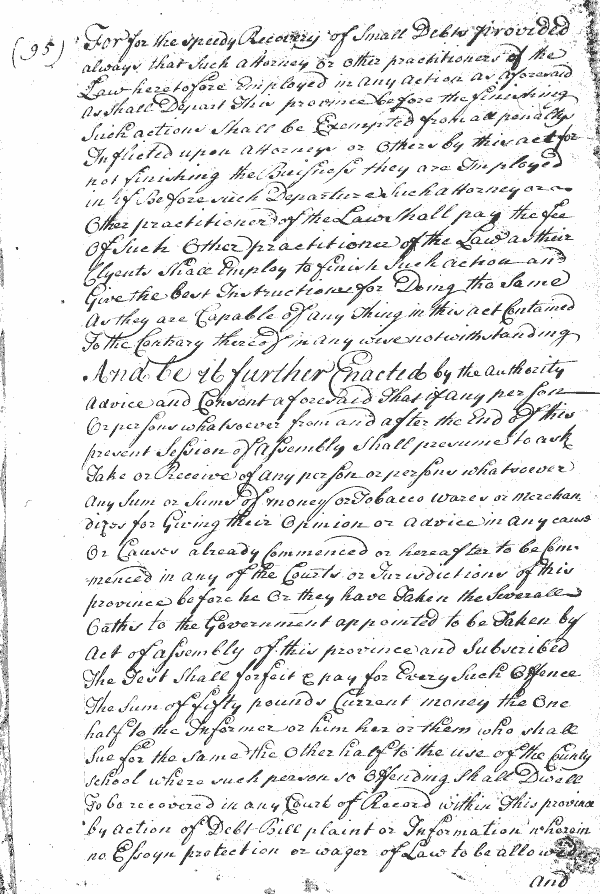 (95)
For for the speedy Recovery of Small Debts provided
always that Such Attorney or other practitioners of the
Law heretofore Employed in any action as aforesaid
as shall Depart this province before the finishing
Such actions Shall be Exempted from all penaltys
Inflicted upon Attorneys or Others by this act for
not finishing the Buisness they are Imployed
in if Before such Departure Such attorney or
Other practitioner of the Law shall pay the fee
Of Such Other practitioner of the Law as their
Clyents Shall Employ to finish Such action and
Give the best Instructions for Doing the Same
As they are Capable of any thing in this act Contained
To the Contrary thereof in any wise notwithstanding
And be it further Enacted by the authority
advice and Consent aforesaid That if any person
Or persons whatsoever from and after the End of this
present Session of assembly Shall presume to ask
Take or Receive of any person or persons whatsoever
any Sum or Sums of money or Tobacco wares or merchan
dizes for Giving their Opinion or advice in any cause
Or Causes already Commenced or hereafter to be Com=
menced in any of the Courts or Jurisdictions of this
province before he Or they have Taken the Severall
Oaths to the Government appointed to be Taken by
Act of assembly of this province and Subscribed
The Test Shall forfeit & pay for Every Such Offence
The Sum of fifty pounds Current money the One
half to the Informer or him her or them who shall
Sue for the same the Other half to the use of the County
School where such person so Offending shall Dwell
To be recovered in any Court of Record within This province
by action of Debt Bill plaint or Information wherein
no Essoyn protection or wager of Law to be allowed
and